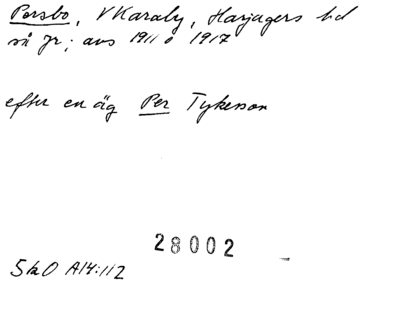 Persbo, V Karaby, Harjagers hd
så jr; avs 1911 o 1917
efter en äg Per Tykesson
28002
SkO A14:112